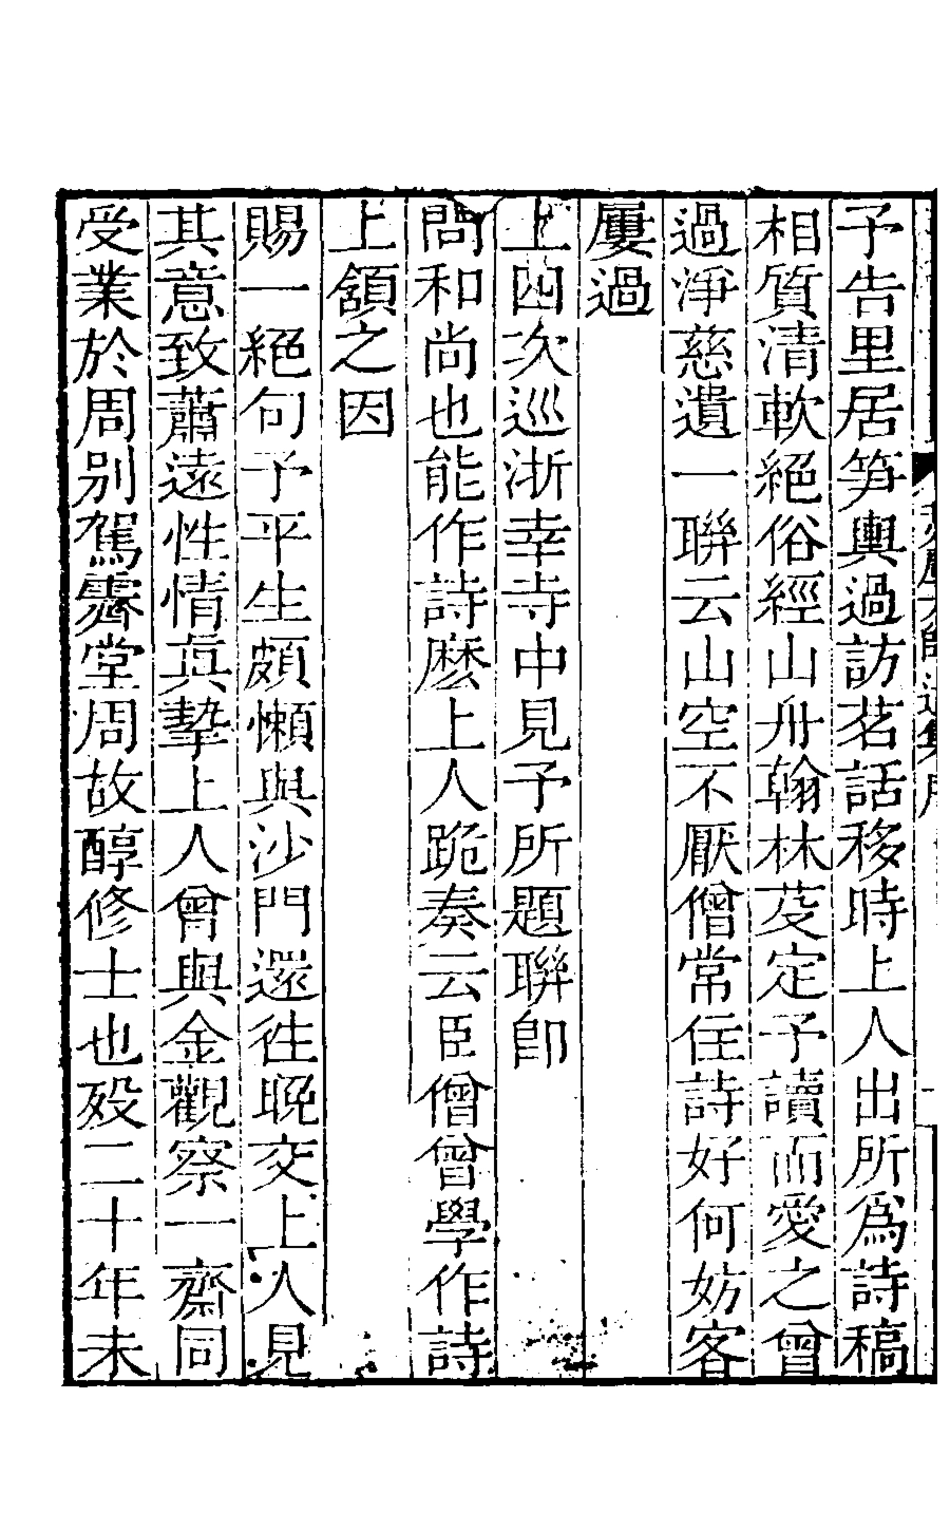 予告里居笋輿過訪茗話移時上人出所爲詩稿
相質清軟絕俗經山舟翰林芟定予讀而愛之曾
過淨慈遺一聯云山空不厭僧常住詩好何妨客
屢過
上四次巡浙幸寺中見予所題聯卽
問和尚也能作詩麽上人跪奏云臣僧曾學作詩
上頷之因
賜一絕句予平生頗懶與沙門還徃晚交上人見
其意致蕭遠性情眞摯上人曾與金觀察一齋同
受業於周別駕霽堂周故醇修士也殁二十年未